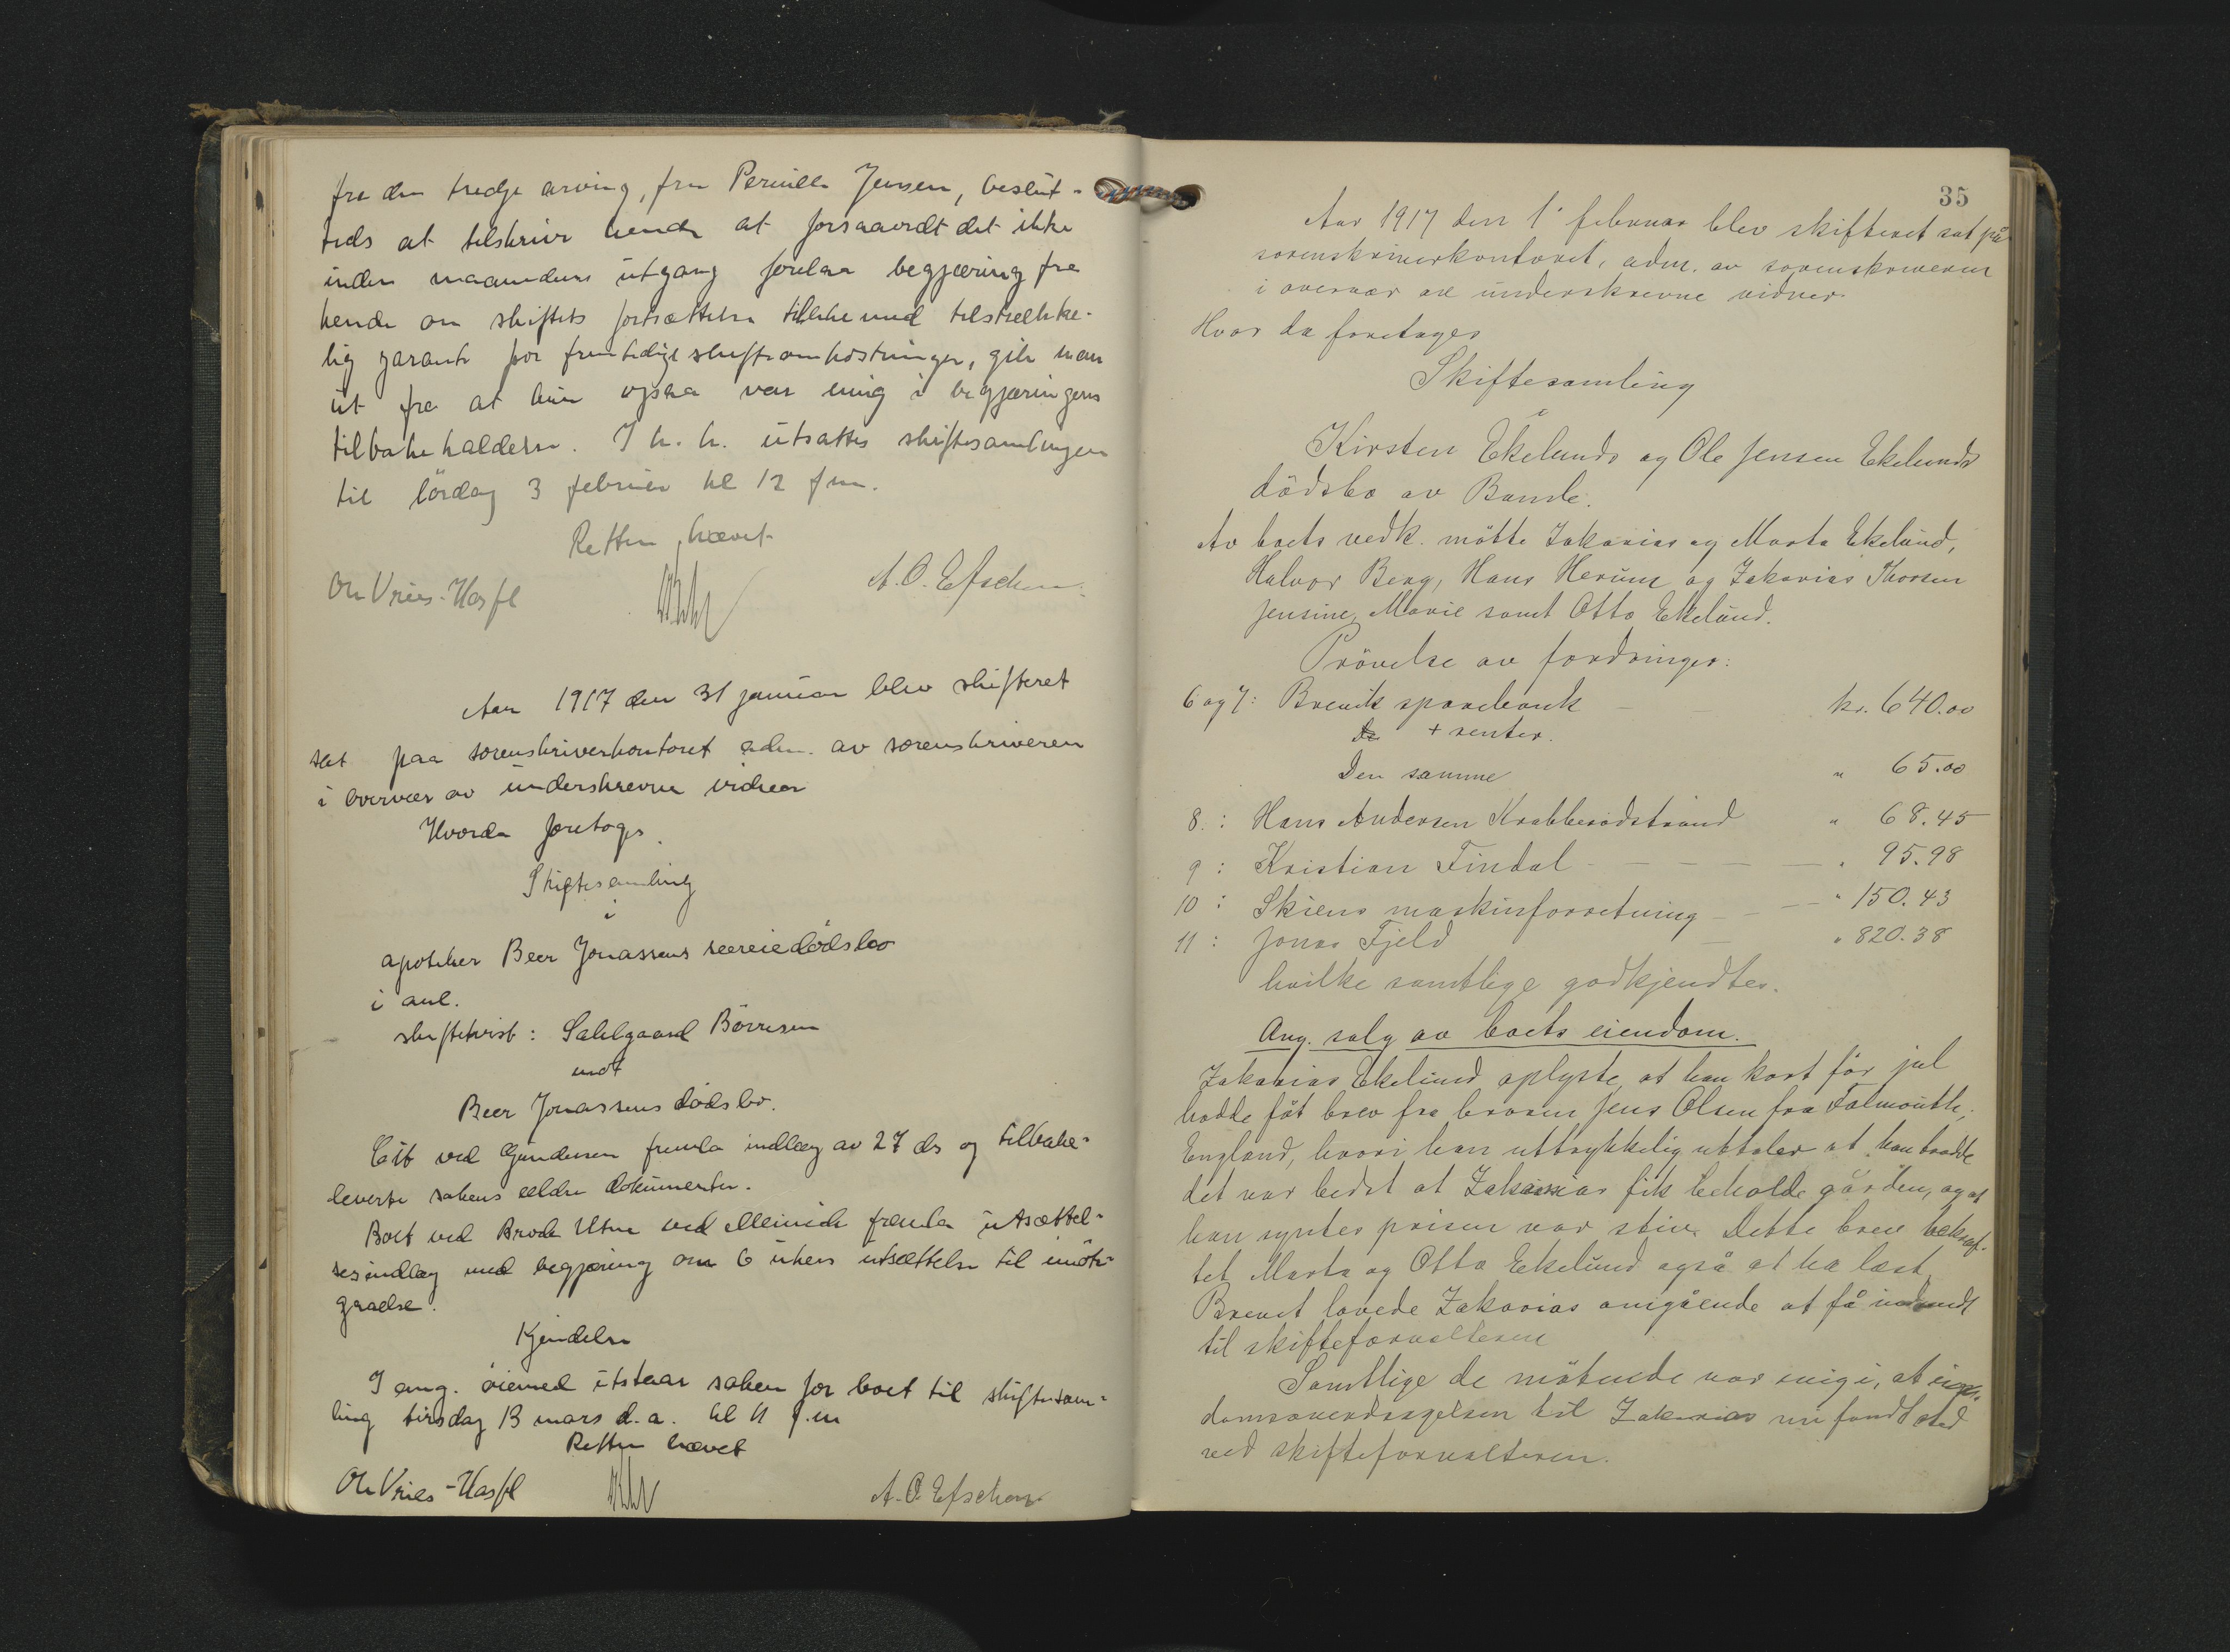 fra den tredje arving, fru Pernille Jensen, beslut-
teds at tilskrive hende at forsaavidt det ikke
inden maanedens utgang forelaa begjæring fra
hende om skiftets fortsættelse tillike med tilstrekke-
lig garanti for fremtidige skifteomkostninger, gik man
ut fra at hun ogsaa var enig i begjæringens
tilbakekaldelse. I h. h. utsattes skiftesamlingen
til lördag 3 februar kl 12 fm.
Retten hævet
A. O. Efschen
Aar 1917 den 31 januar blev skifteret
sat paa sorenskriverkontoret adm. av sorenskriveren
i overvær av underskrevne vidner
Hvorda foretoges
Skiftesamling
i
apoteker Beer Jonassens særeiedödsbo
i anl.
skiftetvist: Sahlgaard Börresen
mot
Beer Jonassens dödsbo.
Cit ved Gundersen fremla indlæg av 27 ds og tilbake-
leverte sakens ældre dokumenter.
Boet ved Brode Utne ved fremla utsættel-
sesindlæg med begjæring om 6 ukers utsættelse til imöte-
gaaelse.
Kjendelse
I ang. öiemed utstaar saken for boet til skiftesam-
ling tirsdag 13 mars d.a. kl 11 f.m
Retten hævet
A. O. Efschen
35
Aar 1917 den 1' februar blev skifteret sat på
sorenskriverkontoret, adm. av sorenskriveren
i overvær av underskrevne vidner.
Hvor da foretages
Skiftesamling
i
Kirsten Ekelunds og Ole Jensen Ekelunds
dödsbo av Bamle.
Av boets vedk. mötte Zakarias og Marta Ekelund,
Halvor Berg, Hans Herum og Zakarias Thorsen
Jensine, Marie samt Otto Ekelund.
Prövelse av fordringer:
6 og 7: Brevik sparebank kr. 640.00
+ renter.
Den samme " 65.00
8. : Hans Andersen Krabberödstrand " 68.45
9 : Kristian Findal " 95.98
10 : Skiens maskinforretning " 150.43
11 : Jonas Fjeld " 820.38
hvilke samtlige godkjendtes.
Ang. salg av boets eiendom.
Zakarias Ekelund oplyste, at han kort för jul
hadde fåt brev fra broren Jens Olsen fra Falmouth,
England, hvori han uttrykkelig uttaler at han trodde
det var bedst at Zakarias fik beholde gården, og at
han syntes prisen var stiv. Dette brev bekræf-
tet Marta og Otto Ekelund også at ha læst.
Brevet lovede Zakarias omgående at få indsendt
til skifteforvalteren
Samtlige de mötende var enig i, at eien-
domsoverdragelsen til Zakarias nu fandt sted
ved skifteforvalteren.